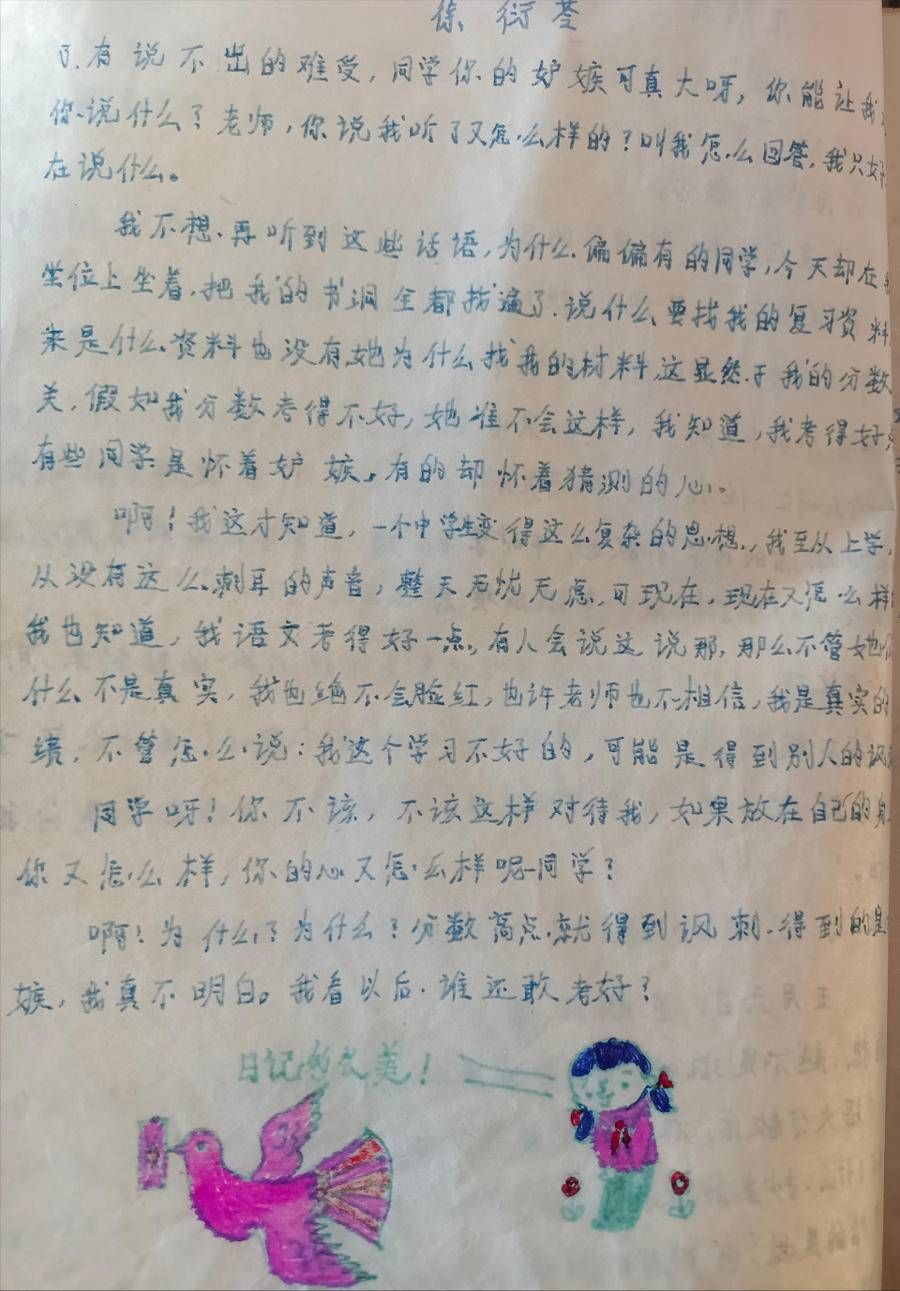 徐衍荃
了.有说不出的难受,同学你的妒嫉可真大呀,你能让我
你说什么?老师,你说我听了又怎么样的?叫我怎么回答,我只好
在说什么。
我不想再听到这些话语,为什么偏偏有的同学,今天却在
坐位上坐着,把我的书洞全都找遍了.说什么要找我的复习资料
来是什么资料也没有,她为什么找我的材料,这显然于我的分数
关,假如我分数考得不好,她谁不会这样,我知道,我考得好
有些同学是怀着妒嫉,有的却怀着猜测的心。
啊!我这才知道,一个中学生变得这么复杂的思想,我至从上学,
从没有这么刺耳的声音,整天无忧无虑,可现在,现在又怎么样
我也知道,我语文考得好一点,有人会说这说那,那么不管她
什么不是真实,我也绝不会脸红,也许老师也不相信,我是真实的
绩,不管怎么说:我这个学习不好的,可能是得到别人的讽
同学呀!你不该,不该这样对待我,如果放在自己的身
你又怎么样,你的心又怎么样呢同学?
啊!为什么?为什么?分数高点就得到讽刺,得到的是
嫉,我真不明白。我看以后谁还敢考好?
日记 美!